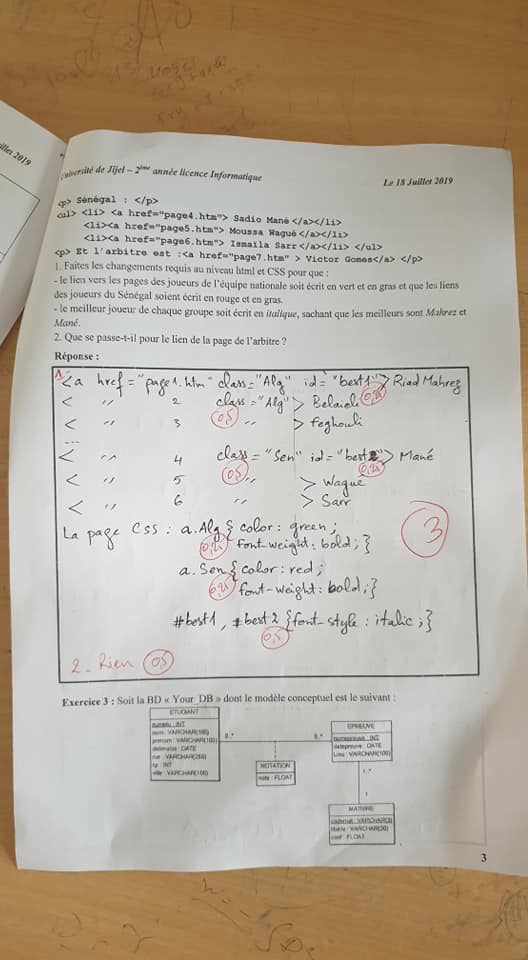 Université de Jijel – 2ème année licence Informatique
Le 18 Juillet 2019
illet 2019
<p> Sénégal : </p>
<ul> <li> <a href="page4.htm"> Sadio Mané </a></li>
<li><a href="page5.htm"> Moussa Wagué </a></li>
<li><a href="page6.htm"> Ismaïla Sarr </a></li> </ul>
<p> Et l'arbitre est :<a href="page7.htm" > Victor Gomes</a> </p>
1. Faites les changements requis au niveau html et CSS pour que :
- le lien vers les pages des joueurs de l'équipe nationale soit écrit en vert et en gras et que les liens
des joueurs du Sénégal soient écrit en rouge et en gras.
- le meilleur joueur de chaque groupe soit écrit en italique, sachant que les meilleurs sont Mahrez et
Mané.
2. Que se passe-t-il pour le lien de la page de l'arbitre ?
Réponse :
1- <a href="page1.htm" class="Alg" id="best1"> Riad Mahrez
0,25
< " 2 class="Alg"> Belaili
0,5
< " 3 " > Feghouli
---
< " 4 class="Sen" id="best2"> Mané
0,5 0,25
< " 5 " > Wagué
< " 6 " > Sarr
La page CSS : a.Alg { color: green;
0,25 font-weight: bold;}
3
a.Sen { color: red;
0,25 font-weight: bold;}
#best1, #best2 {font-style: italic;}
0,5
2- Rien 0,5
Exercice 3 : Soit la BD « Your_DB » dont le modèle conceptuel est le suivant :
ETUDIANT
numetu : INT
nom : VARCHAR(100)
prenom : VARCHAR(100)
datenaiss : DATE
rue : VARCHAR(250)
cp : INT
ville : VARCHAR(100)
0..*
0..*
NOTATION
note : FLOAT
EPREUVE
numepreuve : INT
datepreuve : DATE
Lieu : VARCHAR(100)
1
MATIERE
coef : FLOAT
3